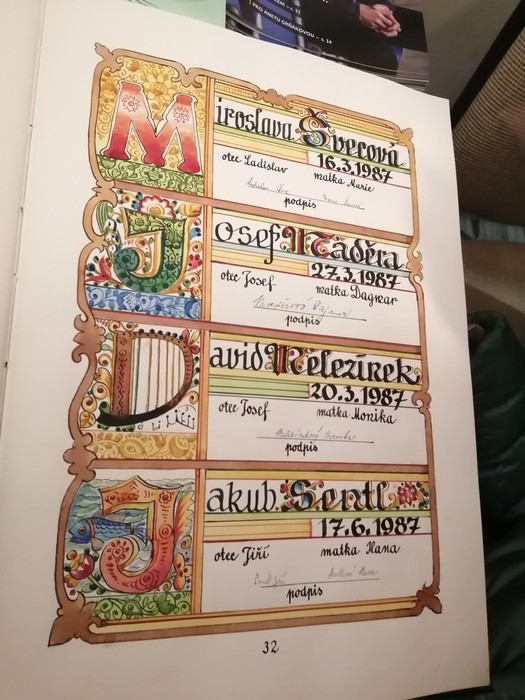 PRO ANETU GRŇÁKOVOU – s. 14
Miroslava Švecová
16.3.1987
otec Ladislav matka Marie
podpis
Josef Maděra
27.3.1987
otec Josef matka Dagmar
podpis
David Mělezínek
20.3.1987
otec Josef matka Monika
podpis
Jakub Sentl
17.6.1987
otec Jiří matka Hana
podpis
32